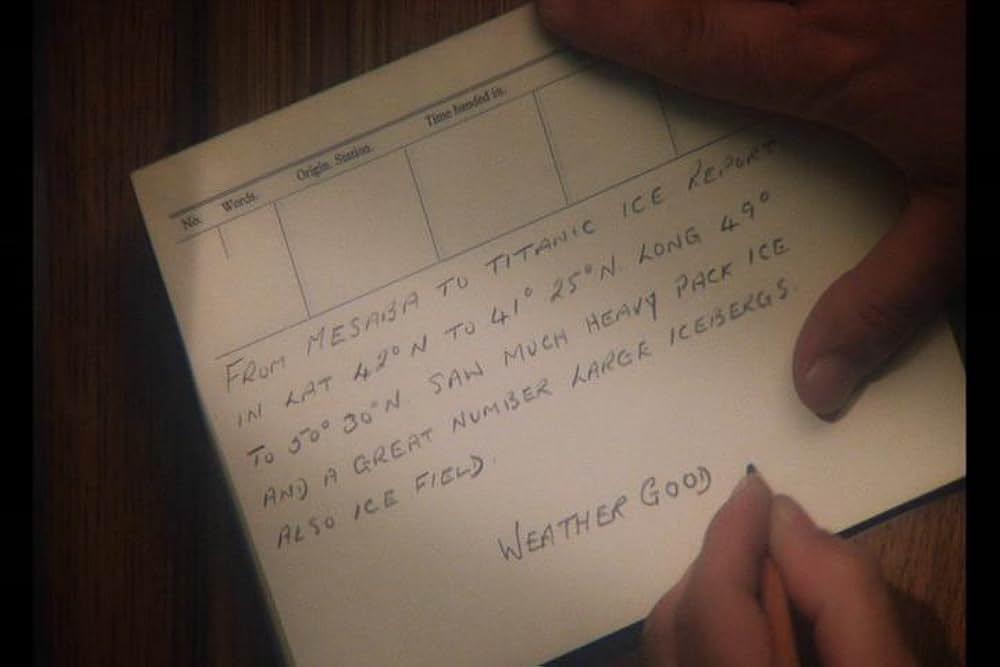 No. Words. Origin. Station. Time handed in.
FROM MESABA TO TITANIC ICE REPORT
IN LAT 42° N TO 41° 25° N. LONG 49°
TO 50° 30° N. SAW MUCH HEAVY PACK ICE
AND A GREAT NUMBER LARGE ICEBERGS.
ALSO ICE FIELD.
WEATHER GOOD